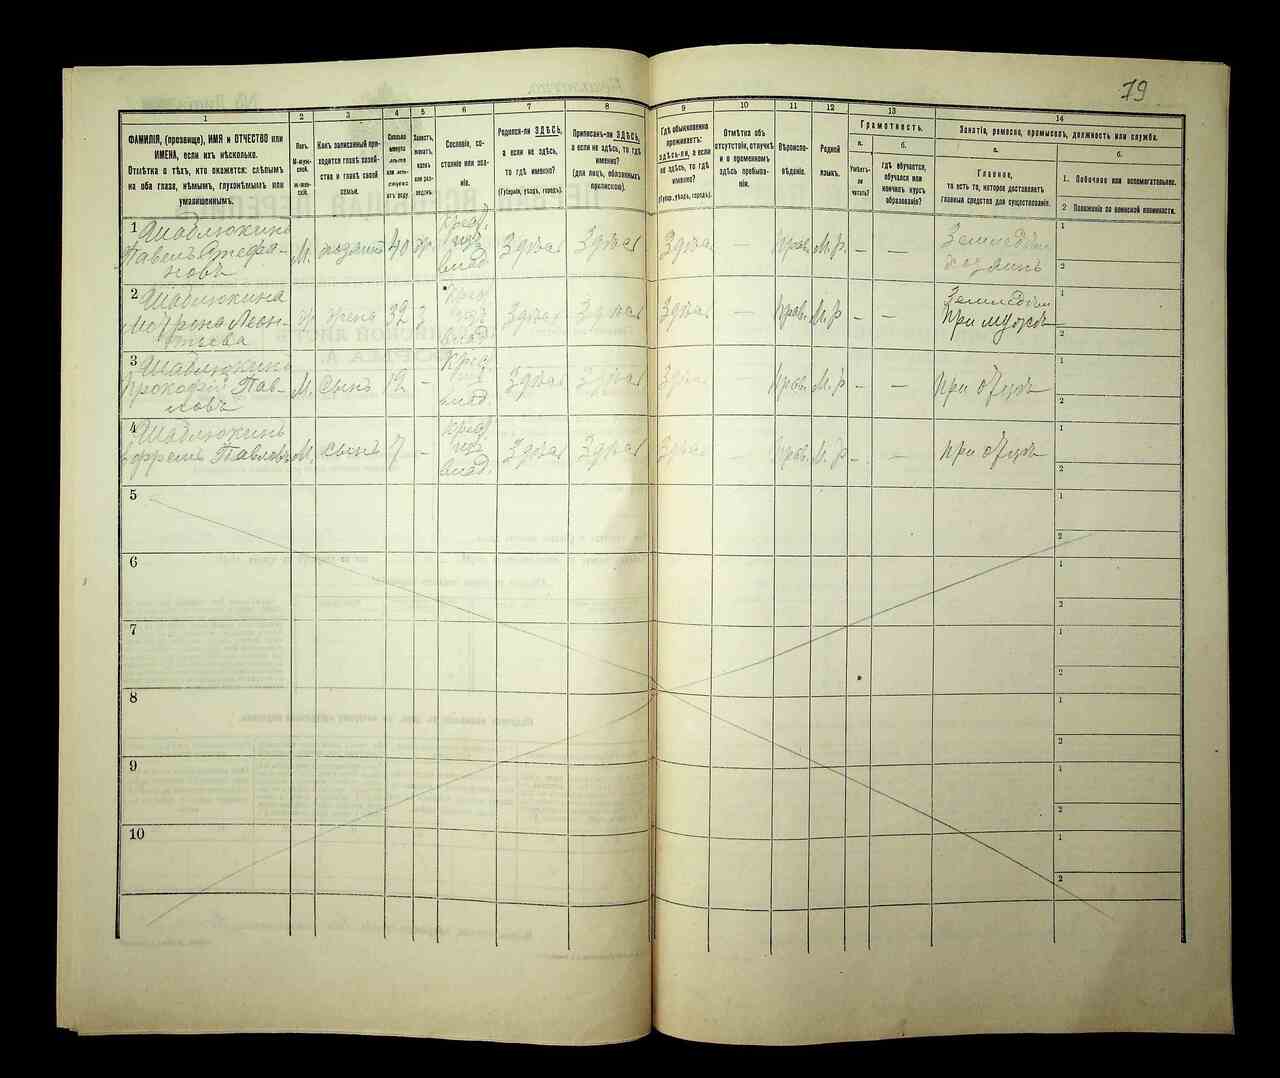 79
1
2
3
4
5
6
7
8
9
10
11
12
13
14
ФАМИЛІЯ, (прозвище), ИМЯ и ОТЧЕСТВО или
ИМЕНА, если ихъ нѣсколько.
Отмѣтка о тѣхъ, кто окажется: слѣпымъ
на оба глаза, нѣмымъ, глухонѣмымъ или
умалишеннымъ.
Полъ.
М-муж-
ской.
Ж-жен-
скій.
Какъ записанный при-
ходится главѣ хозяй-
ства и главѣ своей
семьи.
Сколько
минуло
лѣтъ
или мѣ-
сяцевъ
отъ роду.
Холостъ,
женатъ,
вдовъ
или раз-
веденъ
Сословіе, со-
стояніе или зва-
ніе.
Родился-ли ЗДѢСЬ,
а если не здѣсь,
то гдѣ именно?
(Губернія, уѣздъ, городъ).
Приписанъ-ли ЗДѢСЬ,
а если не здѣсь, то гдѣ
именно?
(для лицъ, обязанныхъ
припискою).
Гдѣ обыкновенно
проживаетъ:
ЗДѢСЬ-ли, а если
не здѣсь, то гдѣ
именно?
(Губер., уѣздъ, городъ).
Отмѣтка объ
отсутствіи, отлучкѣ
и о временномъ
здѣсь пребыва-
ніи.
Вѣроиспо-
вѣданіе.
Родной
языкъ.
Грамотность.
а.
Умѣетъ-
ли
читать?
б.
гдѣ обучается,
обучался или
кончилъ курсъ
образованія?
Занятія, ремесло, промыселъ, должность или служба.
а.
Главное,
то есть то, которое доставляетъ
главныя средства для существованія.
б.
1. Побочное или вспомогательное.
2 Положеніе по воинской повинности.
1 Шаблюкинъ
Павелъ Стефа-
новъ
М.
хозяинъ
40
ж.
Крест.
изъ
влад.
Здѣсь
Здѣсь
Здѣсь
—
Прав.
М. р.
–
—
Земледѣл
хозяинъ
1
2
2 Шаблюкина
Матрена Леон-
тьева
ж
жена
32
з
Крест
изъ
влад
Здѣсь
Здѣсь
Здѣсь
—
Прав.
М. р
–
—
Земледѣл
При мужѣ
1
2
3 Шаблюкинъ
Прокофій Пав-
ловъ
М.
сынъ
12
–
Крест.
изъ
влад.
Здѣсь
Здѣсь
Здѣсь
—
Прав.
М. р
–
—
При отцѣ
1
2
4 Шаблюкинъ
Павловъ
М.
сынъ
7
–
Крест
изъ
влад.
Здѣсь
Здѣсь
Здѣсь
—
Прав.
М. р
–
—
при отцѣ
1
2
5
1
2
6
1
2
7
1
2
8
1
2
9
1
2
10
1
2